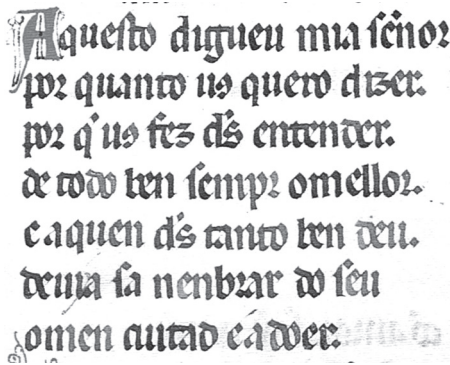 Aquesto digueu mia señor
por quanto us quero dizer.
por q̇ us fez d̃s entender.
de todo ben sempr omellor.
e aquen d̃s tanto ben deu.
deuia sa nenbrar do seu
omen cuitad e a doer.